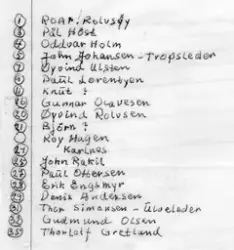 ① ROAR. Rolvsøy
③ Pål Høst
④ Oddvar Holm
⑤ John Johansen - Tropsleder
⑦ Øyvind Ulsten
④ Paul Lorentzen
⑥ Knut ?
Gunnar Olavesen
⑳ Øyvind Rolvsen
㉑ Bjørn ?
Roy Hagen
Karlnes
John Rakil
㉗ Paul Ottersen
㉘ Erik Engsmyr
㉙ Denis Andersen
㉛ Thor Simonsen - Ulveleder
㉜ Gudmund Olsen
㉟ Thorleif Gretland